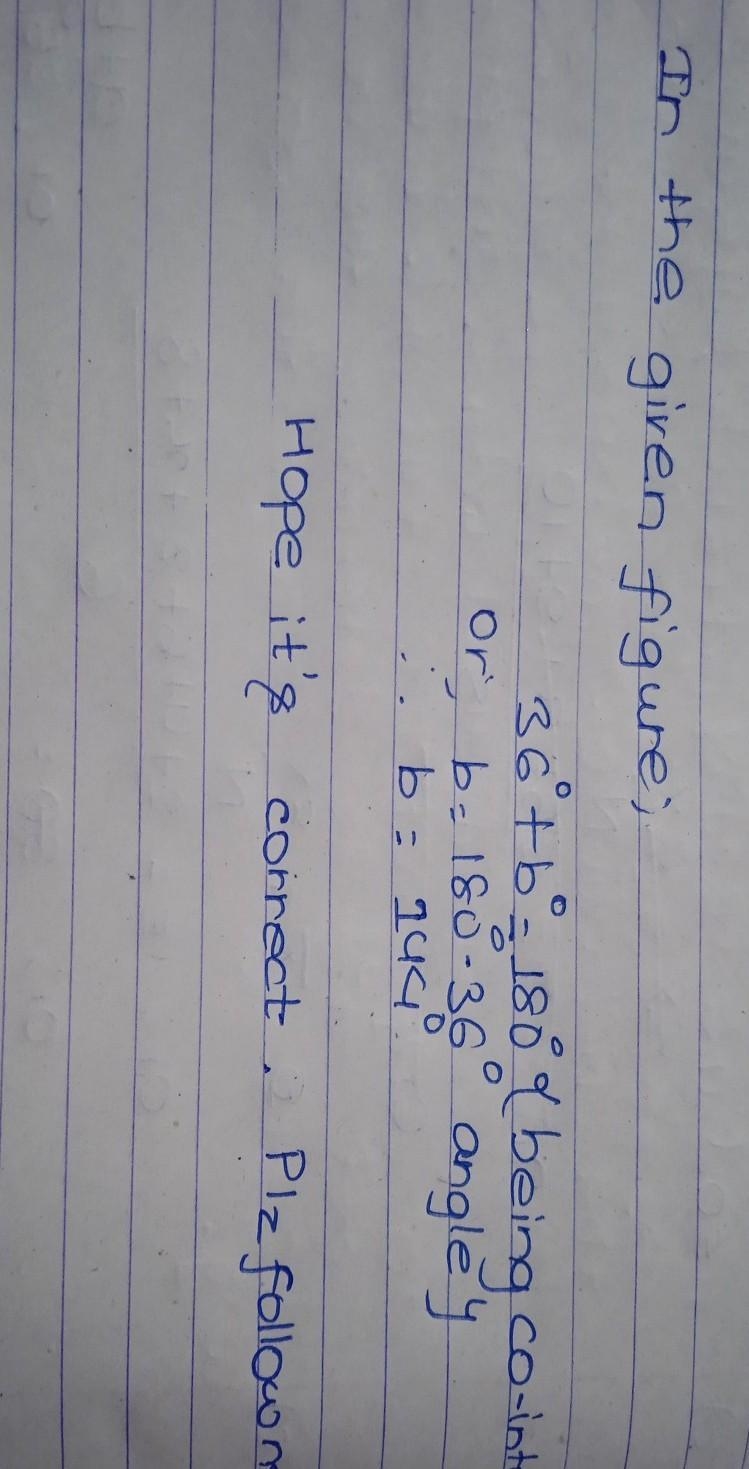 In the given figure,
36° + b° = 180° {being co-int
or, b = 180° - 36° angle}
∴ b = 144°
Hope it's correct. Plz follow